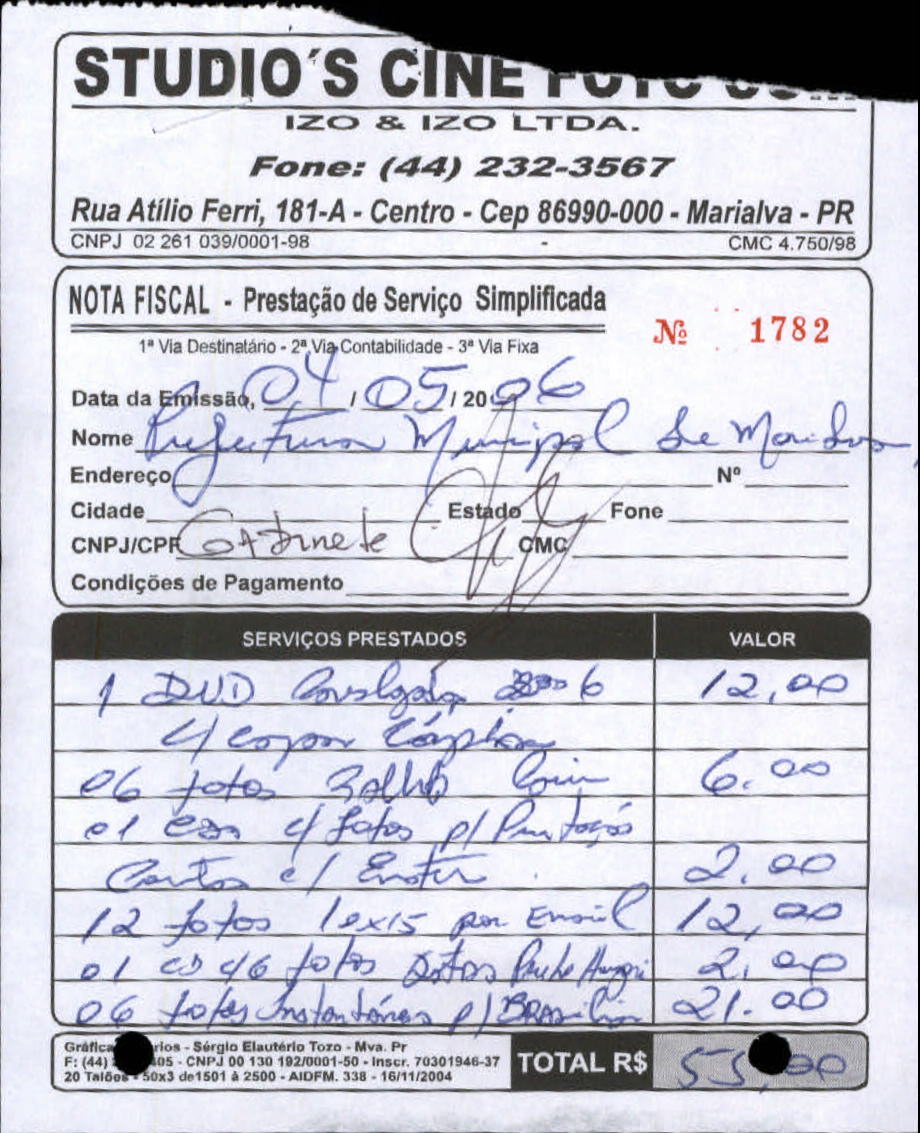 STUDIO´S CINE FOTO
IZO & IZO LTDA.
Fone: (44) 232-3567
Rua Atílio Ferri, 181-A - Centro - Cep 86990-000 - Marialva - PR
CNPJ 02 261 039/0001-98 - CMC 4.750/98
NOTA FISCAL - Prestação de Serviço Simplificada
Nº 1782
1ª Via Destinatário - 2ª Via Contabilidade - 3ª Via Fixa
Data da Emissão, 04 / 05 / 2006
Nome Prefeitura Municipal de
Endereço Nº
Cidade Estado Fone
CNPJ/CPF Gabinete CMC
Condições de Pagamento
SERVIÇOS PRESTADOS VALOR
1 DVD 2006 12,00
c/
06 fotos 6.00
01 c/ fotos p/
c/ 2,00
12 fotos 10x15 por Email 12,00
01 CD fotos 2,00
06 fotos Instantâneas p/ Brasilia 21.00
Gráfica rios - Sérgio Elautério Tozo - Mva. Pr
F: (44) 405 - CNPJ 00 130 192/0001-50 - Inscr. 70301946-37
20 Talões - 50x3 de1501 à 2500 - AIDFM. 338 - 16/11/2004
TOTAL R$ 55,00